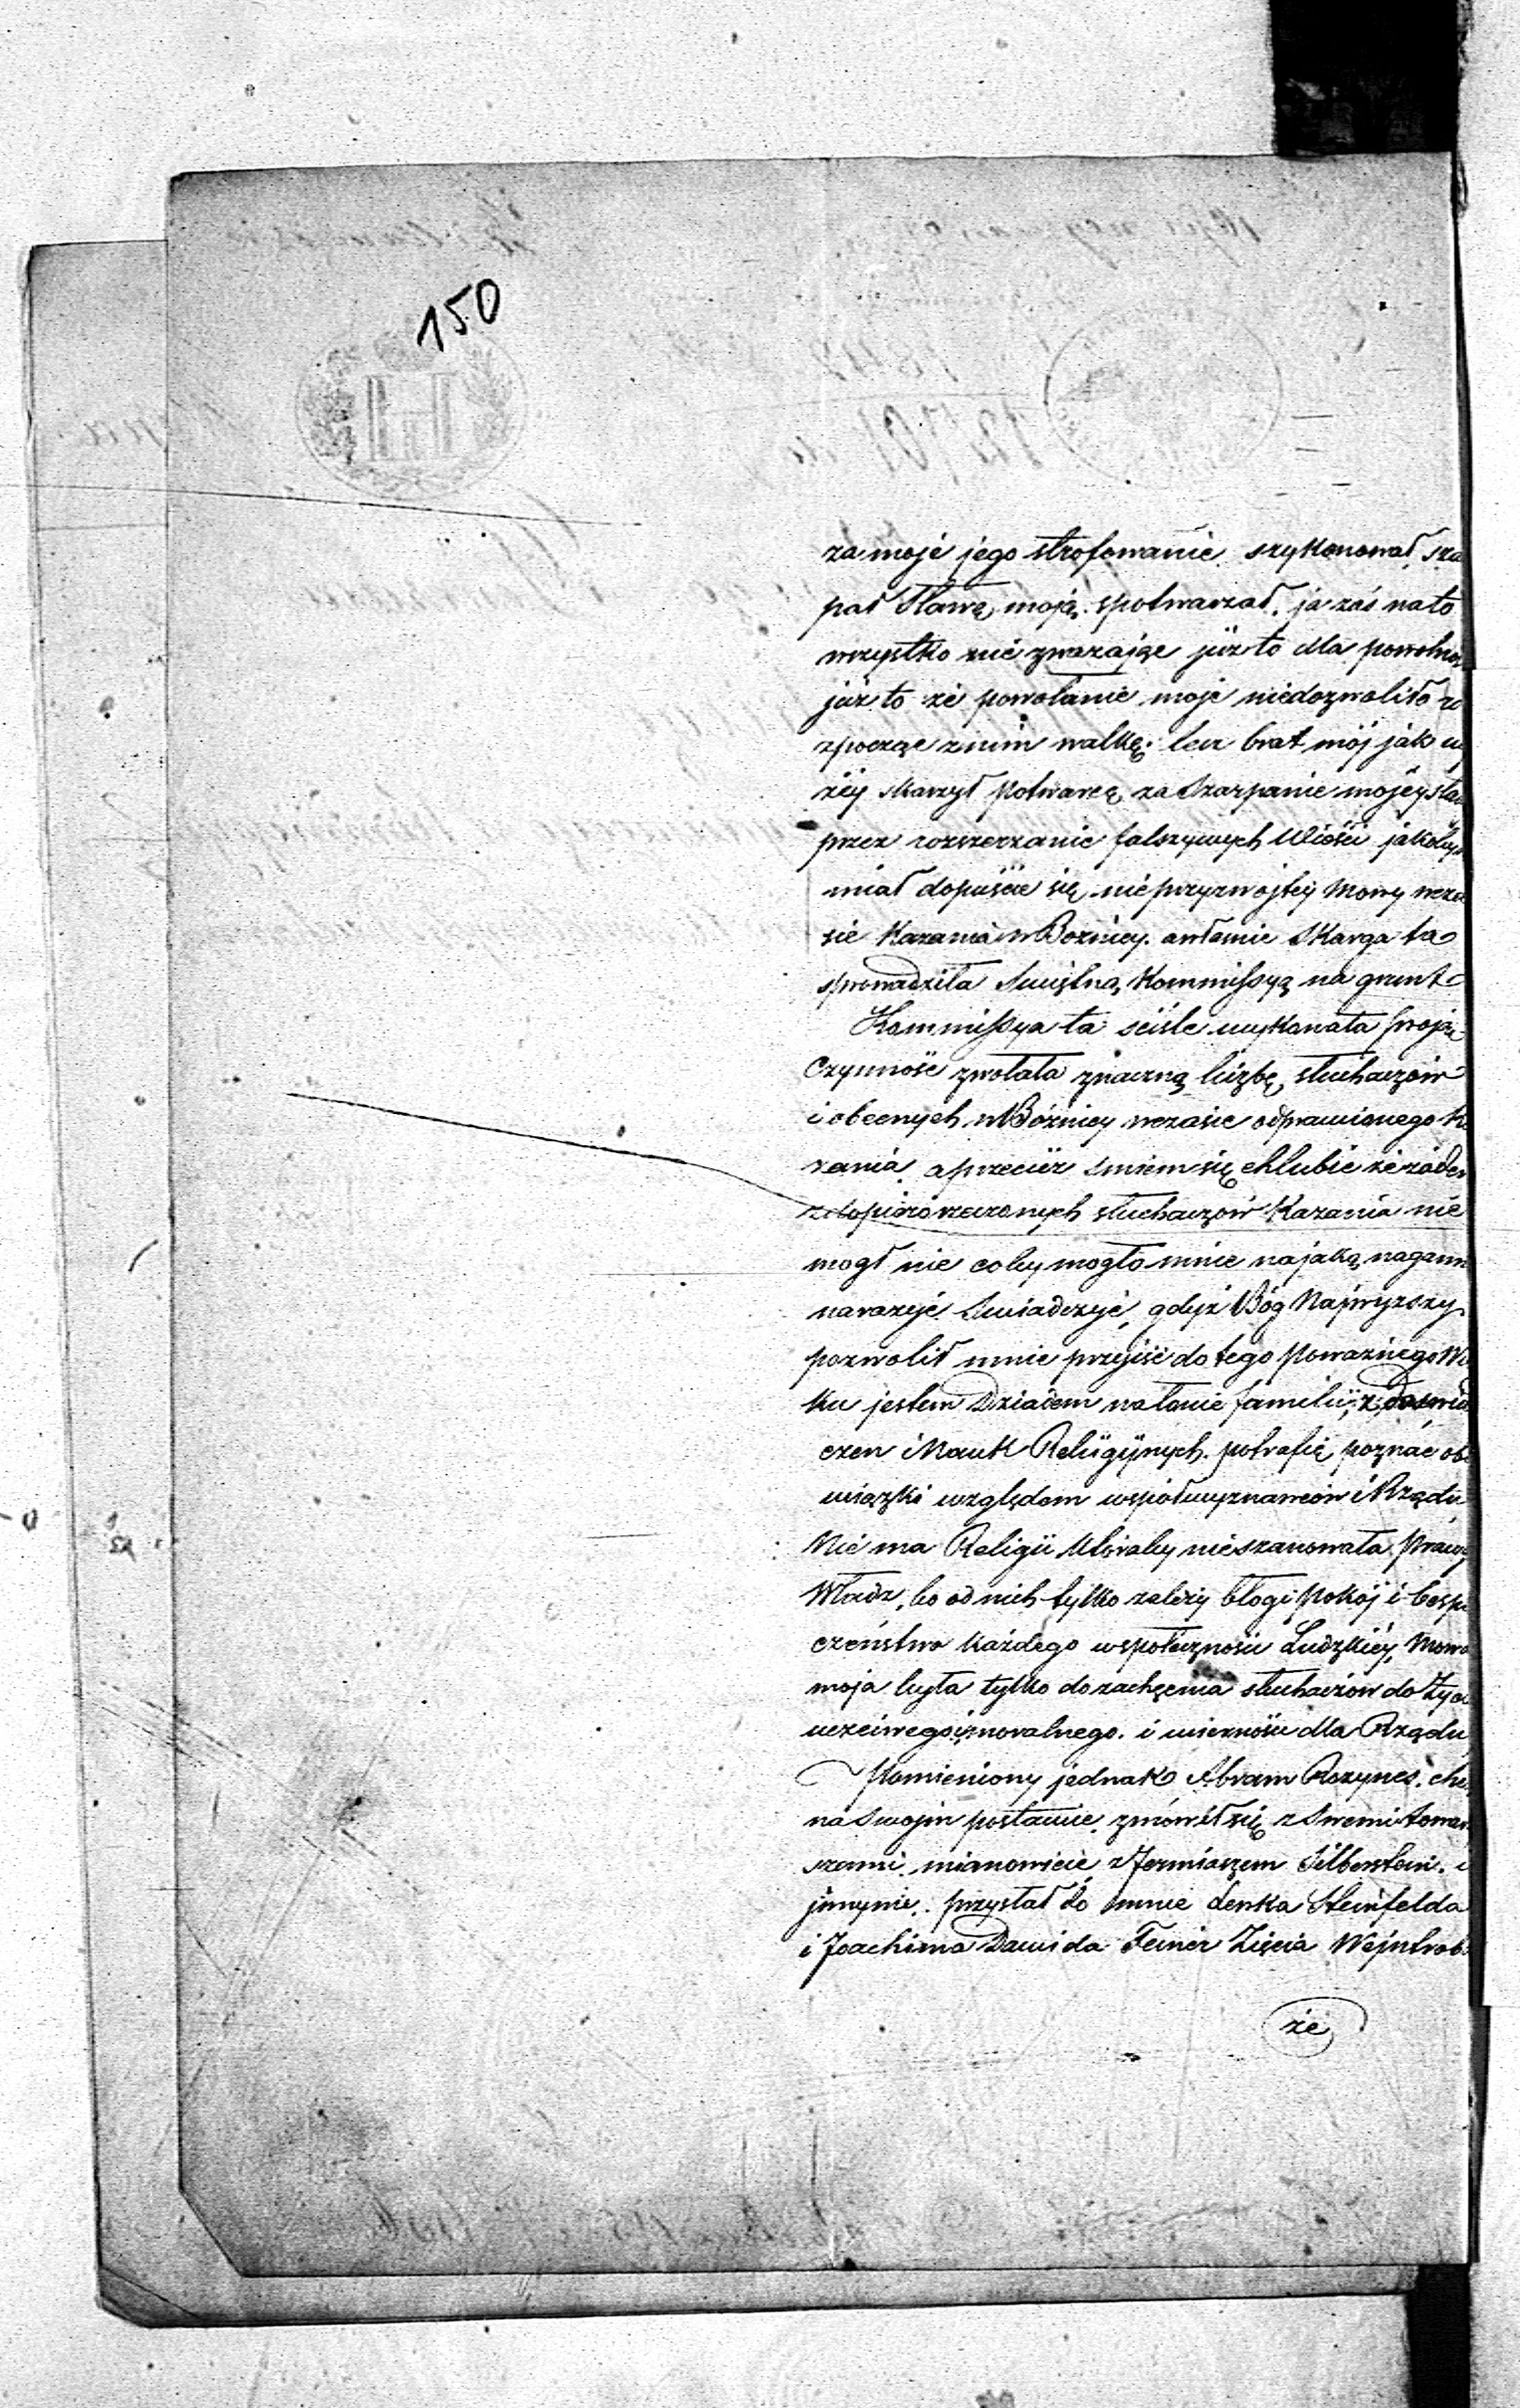 150
za moje jego strofowanie. szykonował, sza
pał Sławę moją. spotwarzał. ja zaś na to
wszystko nie zwazając już to dla powolno
już to że powołanie moje niedozwoliło ro
zpocząc z nim walkę. lecz brat mój jak wy
żéy skarzył potwarcę za Szarpanie mojéy sła
przez rozszerzanie falszywych Wieści jakoby
miał dopuście się nieprzyzwojtéj Mowy wcza
sie Kazania w Boznicy. awłasnie Skarga ta
sprowadziła Swiętną Kommissyą na grunt
Kommissya ta sciśle wykonała swoją
Czynnośc zwołała znaczną liczbę, słuchaczów
i obecnych w Bóżnicy wczasie odprawionego Ka
zania. a przecież smiem się chlubic że żaden
z dopiéro rzeczonych słuchaczów Kazania nie
mogł nic coby mogło mnie na jaką nagann
narazyć Swiadczyć, gdyż Bóg Najwyzszy
pozwolił mnie przejść do tego Powaznego Wie
ku jestem Dziadem na łonie familii, z doswiad
czen i Nauk Religijnych. potrafię poznać obo
wiązki względem współwyznawców i Rządu
Nie ma Religii któraby nieszanowała Prawą
Władz, bo od nich tylko zależy błogi Pokój i bespie
czeństwo każdego wspołecznosci Ludzkiéy, Mowa
moja była tylko do zachęcenia słuchaczów do Życia
uczciwego i moralnego. i wiernosci dla Rządu
Pomieniony jednak Abram Rozynes. chc
na Swojm postawic. zmówił się z Swemi towar
szami. mianowicie z Jermiaszem Silberstein. i
jnnymi. przysłał do mnie Lenka Steinfelda
i Joachima Dawida Feiner Zięcia Wejntrob
że